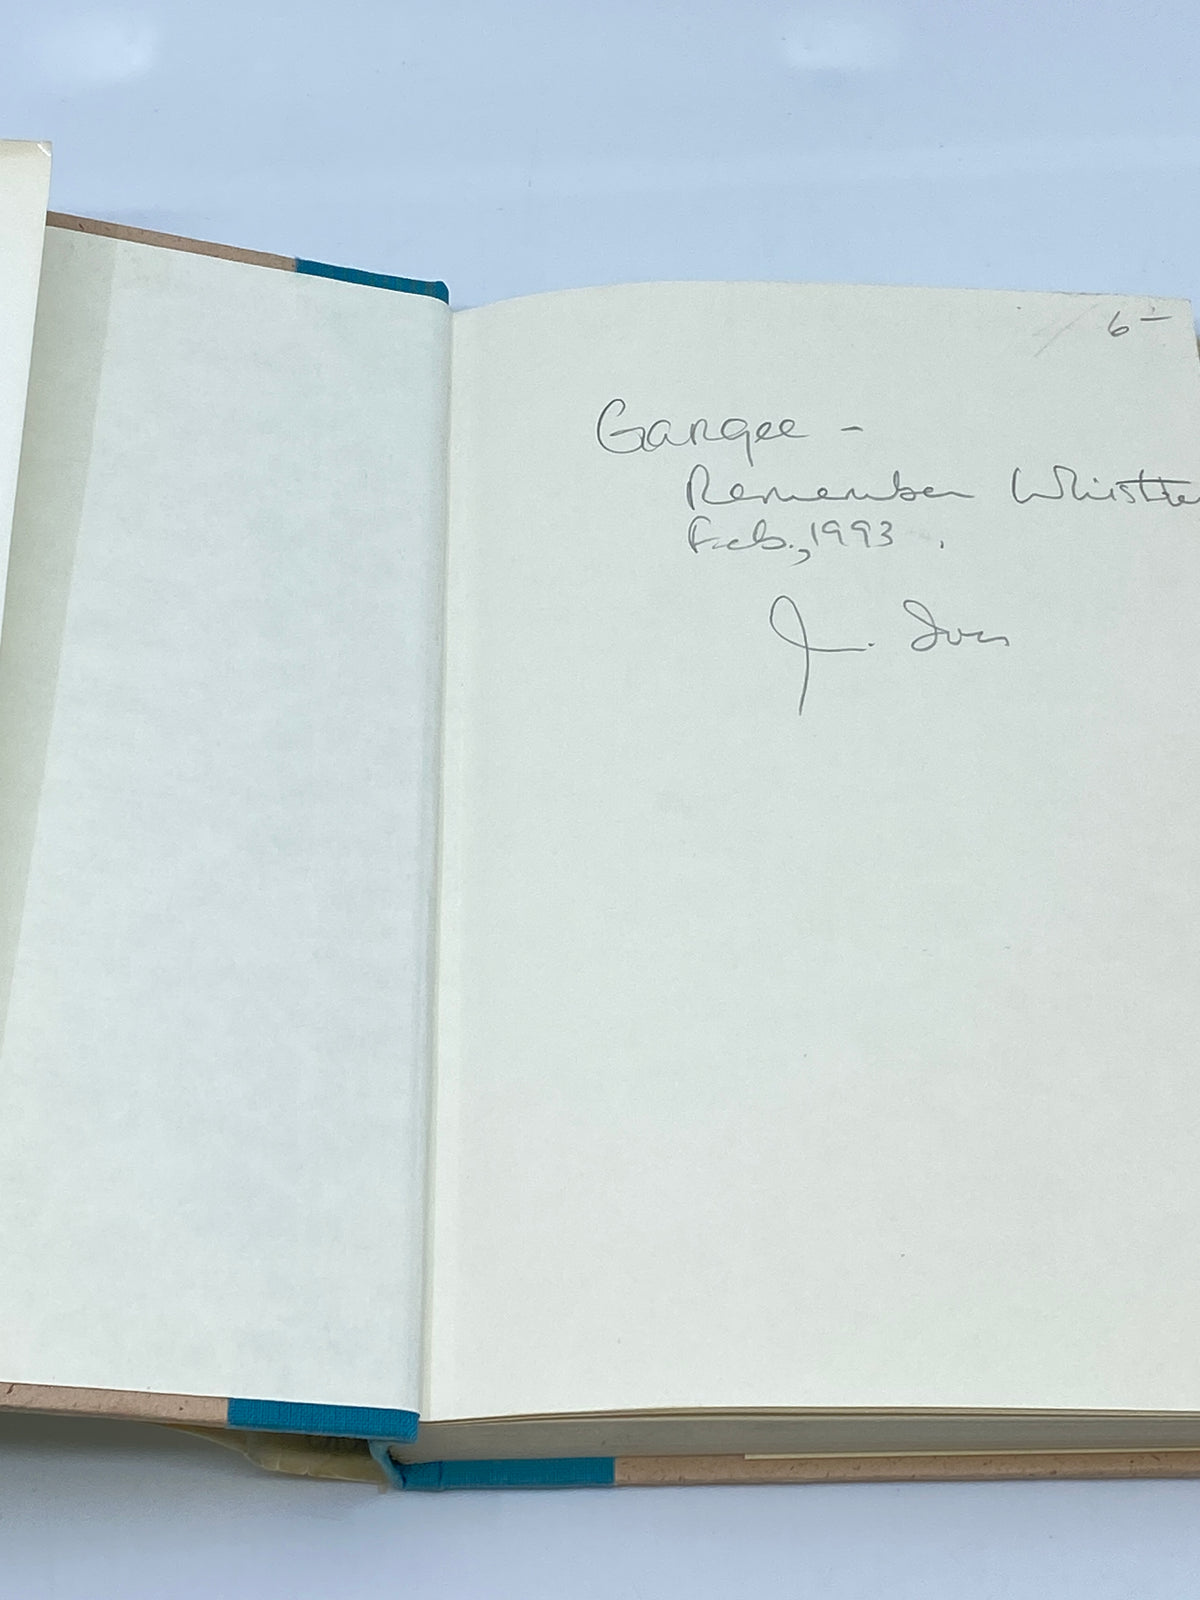 6-
Gargee -
Remember Whistle
Feb., 1993.